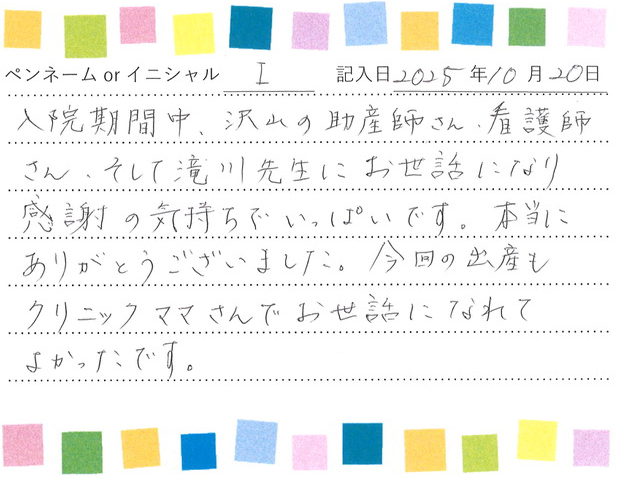 ペンネーム or イニシャル I 記入日 2025年10月20日
入院期間中、沢山の助産師さん、看護師
さん、そして滝川先生にお世話になり
感謝の気持ちでいっぱいです。本当に
ありがとうございました。今回の出産も
クリニックママさんでお世話になれて
よかったです。